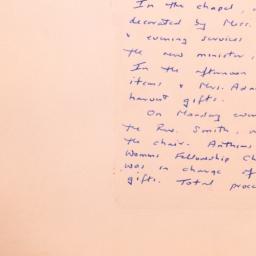 In the chapel,
decorated by Mess.
& evening services
the new minister,
In the afternoon
items & Mrs. Ada
harvest gifts.
On Monday even
the Rev. Smith,
the chair. Anthems
Womens Fellowship Ch
was in charge of
gifts. Total proce